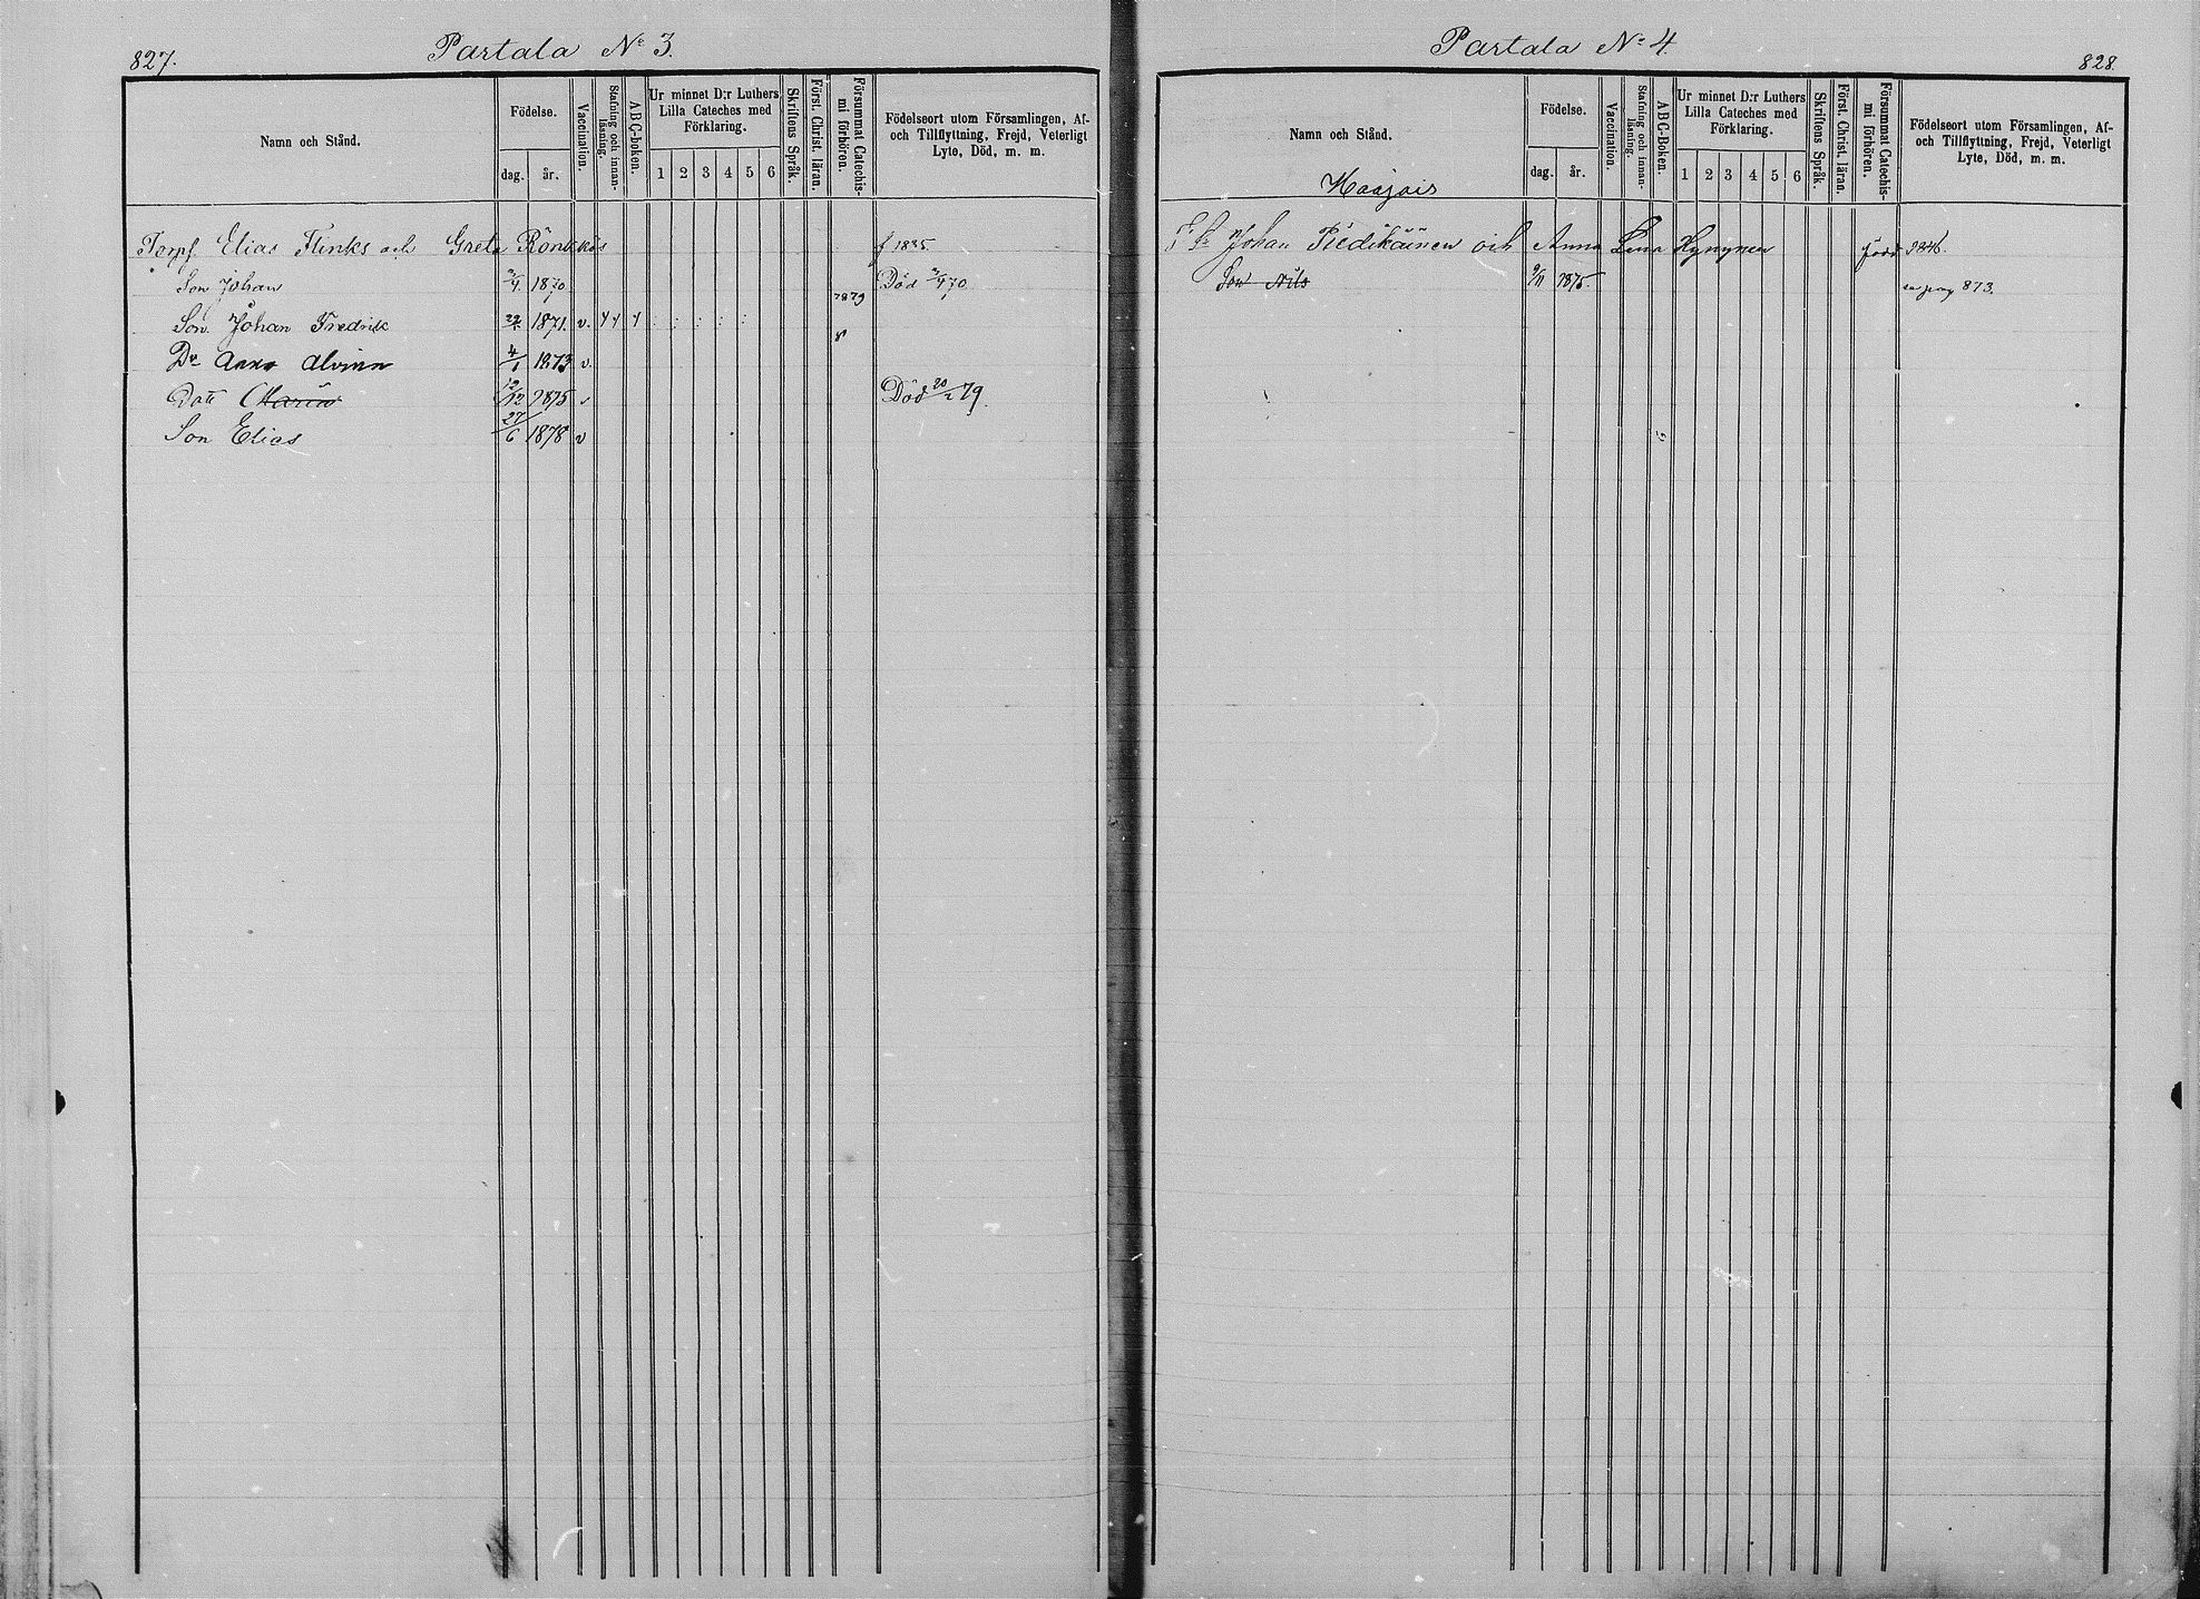 827.
Partala No 3.
Namn och Stånd.
Födelse.
dag. år.
Vaccination.
Stafning och innan-läsning.
ABC-boken.
Ur minnet D:r Luthers
Lilla Cateches med
Förklaring.
1 2 3 4 5 6
Skriftens Språk.
Först. Christ. läran.
Försummat Catechis-mi förhören.
Födelseort utom Församlingen, Af-
och Tillflyttning, Frejd, Veterligt
Lyte, Död, m. m.
Torpf. Elias Flinks och Greta Rönkkös f 1835.
Son Johan 1870 Död 70
1879
Son Johan Fredrik 1871. v.
8
Dr Anna Alvina 4/1 1873 v.
Dott Maria 12/12 1875 Död 20/2 79.
Son Elias 27/6 1878 v
Partala No 4
828.
Namn och Stånd.
Födelse.
dag. år.
Vaccination.
Stafning och innan-läsning.
ABC-Boken.
Ur minnet D:r Luthers
Lilla Cateches med
Förklaring.
1 2 3 4 5 6
Skriftens Språk.
Först. Christ. läran.
Försummat Catechis-mi förhören.
Födelseort utom Församlingen, Af-
och Tillflyttning, Frejd, Veterligt
Lyte, Död, m. m.
Haajais
Johan Piedikäinen och Anna Lena Hynynen född 1846.
Son Nils 9/11 1875. 873.